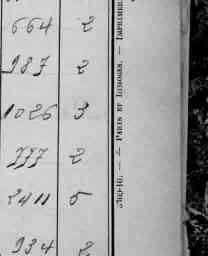 664 2
987 2
1026 3
777 2
2411 5
934 2
5602-10. — PARIS ET LIMOGES. — IMPRIMERIE